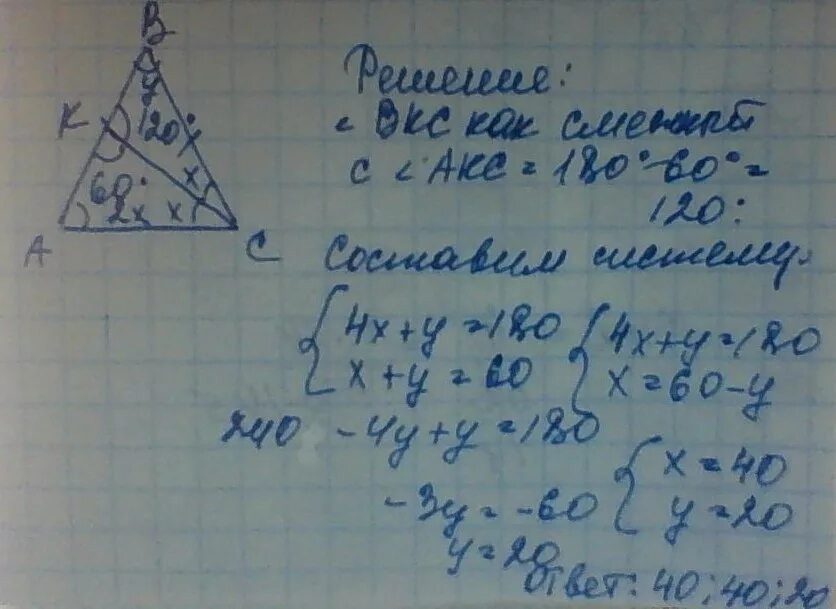 B
y
K 120° x
60°
2x x
A C
Решение:
∠ BKC как смежный
с ∠ AKC = 180° - 60° =
120°
Составим систему:
{ 4x + y = 180 { 4x + y = 180
{ x + y = 60 { x = 60 - y
240 - 4y + y = 180
- 3y = - 60 { x = 40
y = 20 { y = 20
Ответ: 40; 40; 20